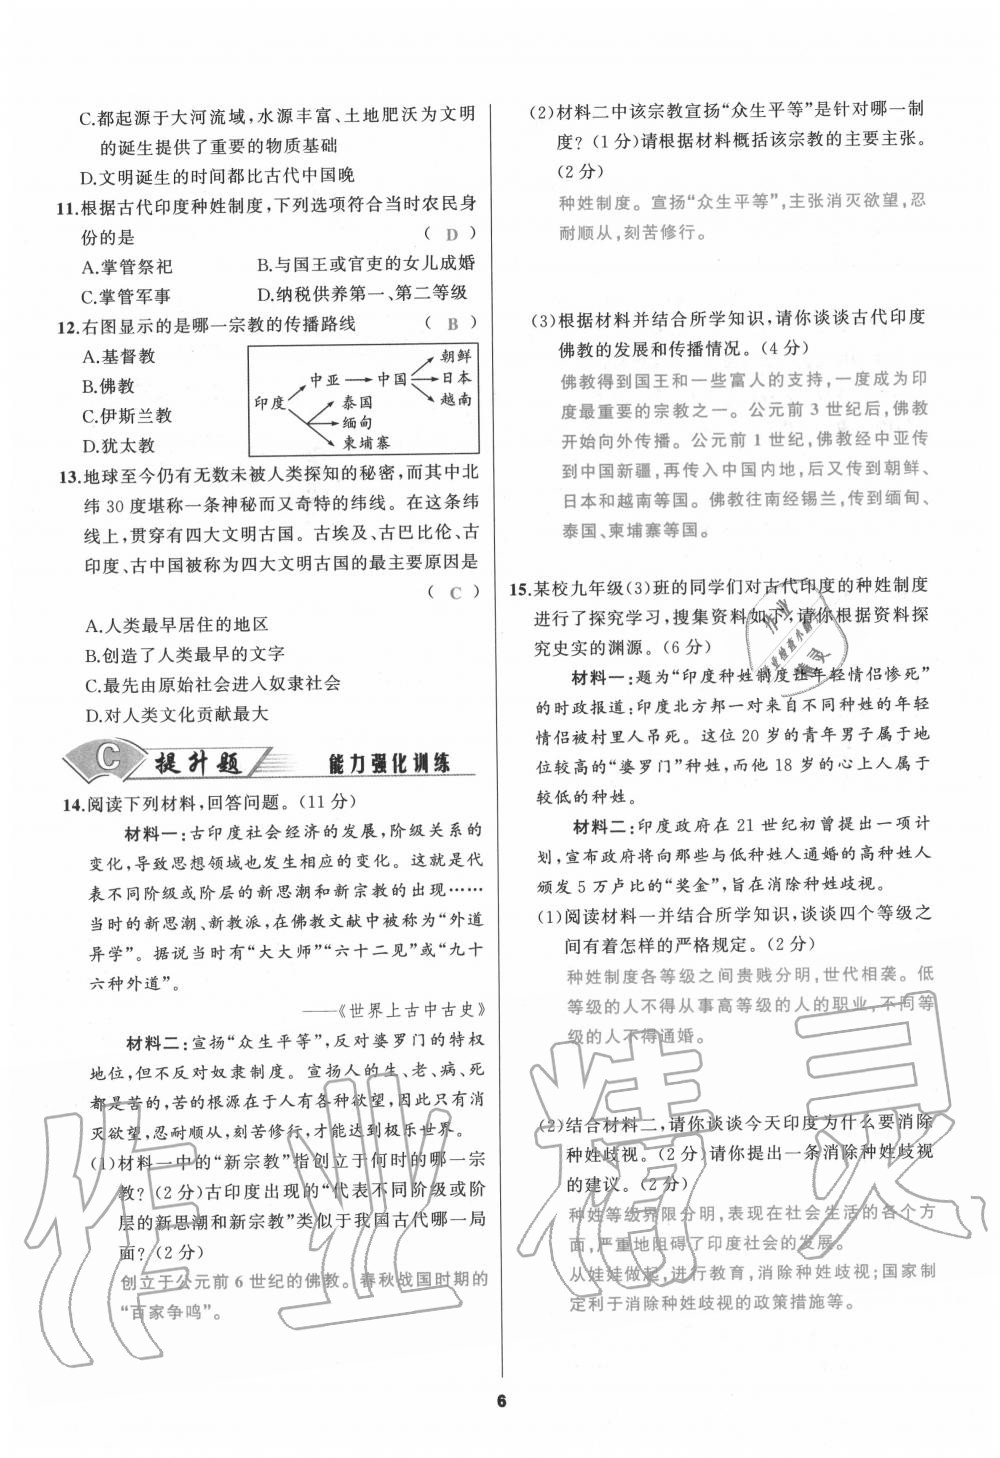 C.都起源于大河流域,水源丰富、土地肥沃为文明
的诞生提供了重要的物质基础
D.文明诞生的时间都比古代中国晚
11.根据古代印度种姓制度,下列选项符合当时农民身
份的是 ( D )
A.掌管祭祀 B.与国王或官吏的女儿成婚
C.掌管军事 D.纳税供养第一、第二等级
12.右图显示的是哪一宗教的传播路线 ( B )
A.基督教
B.佛教
C.伊斯兰教
D.犹太教
印度
中亚
中国
朝鲜
日本
越南
泰国
缅甸
柬埔寨
13.地球至今仍有无数未被人类探知的秘密,而其中北
纬 30 度堪称一条神秘而又奇特的纬线。在这条纬
线上,贯穿有四大文明古国。古埃及、古巴比伦、古
印度、古中国被称为四大文明古国的最主要原因是
( C )
A.人类最早居住的地区
B.创造了人类最早的文字
C.最先由原始社会进入奴隶社会
D.对人类文化贡献最大
C 提升题 能力强化训练
14.阅读下列材料,回答问题。(11 分)
材料一:古印度社会经济的发展,阶级关系的
变化,导致思想领域也发生相应的变化。这就是代
表不同阶级或阶层的新思潮和新宗教的出现……
当时的新思潮、新教派,在佛教文献中被称为“外道
异学”。据说当时有“大大师”“六十二见”或“九十
六种外道”。
——《世界上古中古史》
材料二:宣扬“众生平等”,反对婆罗门的特权
地位,但不反对奴隶制度。宣扬人的生、老、病、死
都是苦的,苦的根源在于人有各种欲望,因此只有消
灭欲望,忍耐顺从,刻苦修行,才能达到极乐世界。
(1)材料一中的“新宗教”指创立于何时的哪一宗
教?(2 分)古印度出现的“代表不同阶级或阶
层的新思潮和新宗教”类似于我国古代哪一局
面?(2 分)
创立于公元前 6 世纪的佛教。春秋战国时期的
“百家争鸣”。
(2)材料二中该宗教宣扬“众生平等”是针对哪一制
度?(1 分)请根据材料概括该宗教的主要主张。
(2 分)
种姓制度。宣扬“众生平等”,主张消灭欲望,忍
耐顺从,刻苦修行。
(3)根据材料并结合所学知识,请你谈谈古代印度
佛教的发展和传播情况。(4 分)
佛教得到国王和一些富人的支持,一度成为印
度最重要的宗教之一。公元前 3 世纪后,佛教
开始向外传播。公元前 1 世纪,佛教经中亚传
到中国新疆,再传入中国内地,后又传到朝鲜、
日本和越南等国。佛教往南经锡兰,传到缅甸、
泰国、柬埔寨等国。
15.某校九年级(3)班的同学们对古代印度的种姓制度
进行了探究学习,搜集资料如下,请你根据资料探
究史实的渊源。(6 分)
材料一:题为“印度种姓制度让年轻情侣惨死”
的时政报道:印度北方邦一对来自不同种姓的年轻
情侣被村里人吊死。这位 20 岁的青年男子属于地
位较高的“婆罗门”种姓,而他 18 岁的心上人属于
较低的种姓。
材料二:印度政府在 21 世纪初曾提出一项计
划,宣布政府将向那些与低种姓人通婚的高种姓人
颁发 5 万卢比的“奖金”,旨在消除种姓歧视。
(1)阅读材料一并结合所学知识,谈谈四个等级之
间有着怎样的严格规定。(2 分)
种姓制度各等级之间贵贱分明,世代相袭。低
等级的人不得从事高等级的人的职业,不同等
级的人不得通婚。
(2)结合材料二,请你谈谈今天印度为什么要消除
种姓歧视。(2 分)请你提出一条消除种姓歧视
的建议。(2 分)
种姓等级界限分明,表现在社会生活的各个方
面,严重地阻碍了印度社会的发展。
从娃娃做起,进行教育,消除种姓歧视;国家制
定利于消除种姓歧视的政策措施等。
6
作业精灵